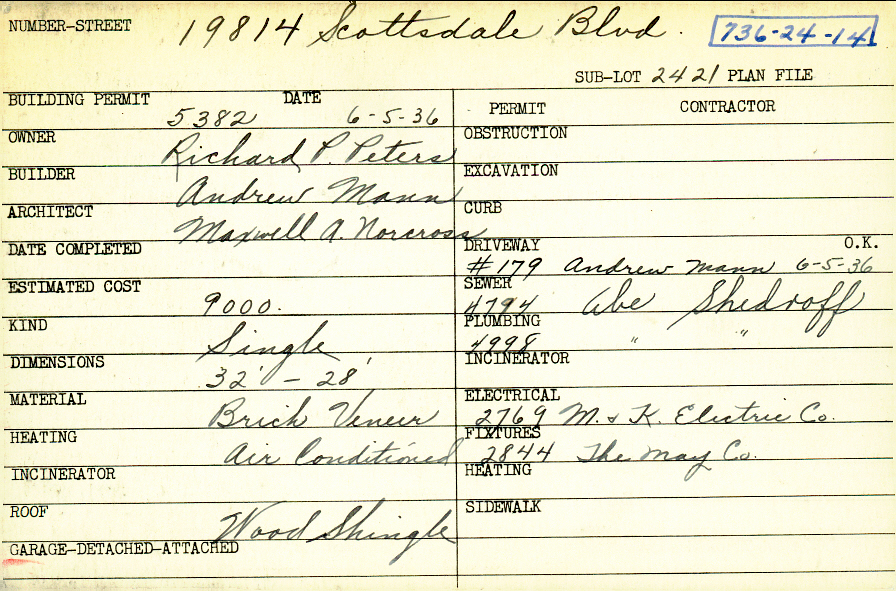 NUMBER-STREET 19814 Scottsdale Blvd. 736-24-14
SUB-LOT 2421 PLAN FILE
BUILDING PERMIT 5382 DATE 6-5-36
OWNER Richard P. Peters
BUILDER Andrew Mann
ARCHITECT Maxwell A. Norcross
DATE COMPLETED
ESTIMATED COST 9000.
KIND Single
DIMENSIONS 32' - 28'
MATERIAL Brick Veneer
HEATING Air Conditioned
INCINERATOR
ROOF Wood Shingle
GARAGE-DETACHED-ATTACHED
PERMIT CONTRACTOR
OBSTRUCTION
EXCAVATION
CURB
DRIVEWAY O.K.
#179 Andrew Mann 6-5-36
SEWER
4794 Abe Shedroff
PLUMBING
4998 " "
INCINERATOR
ELECTRICAL
2769 M. & K. Electric Co.
FIXTURES
2844 The May Co.
HEATING
SIDEWALK